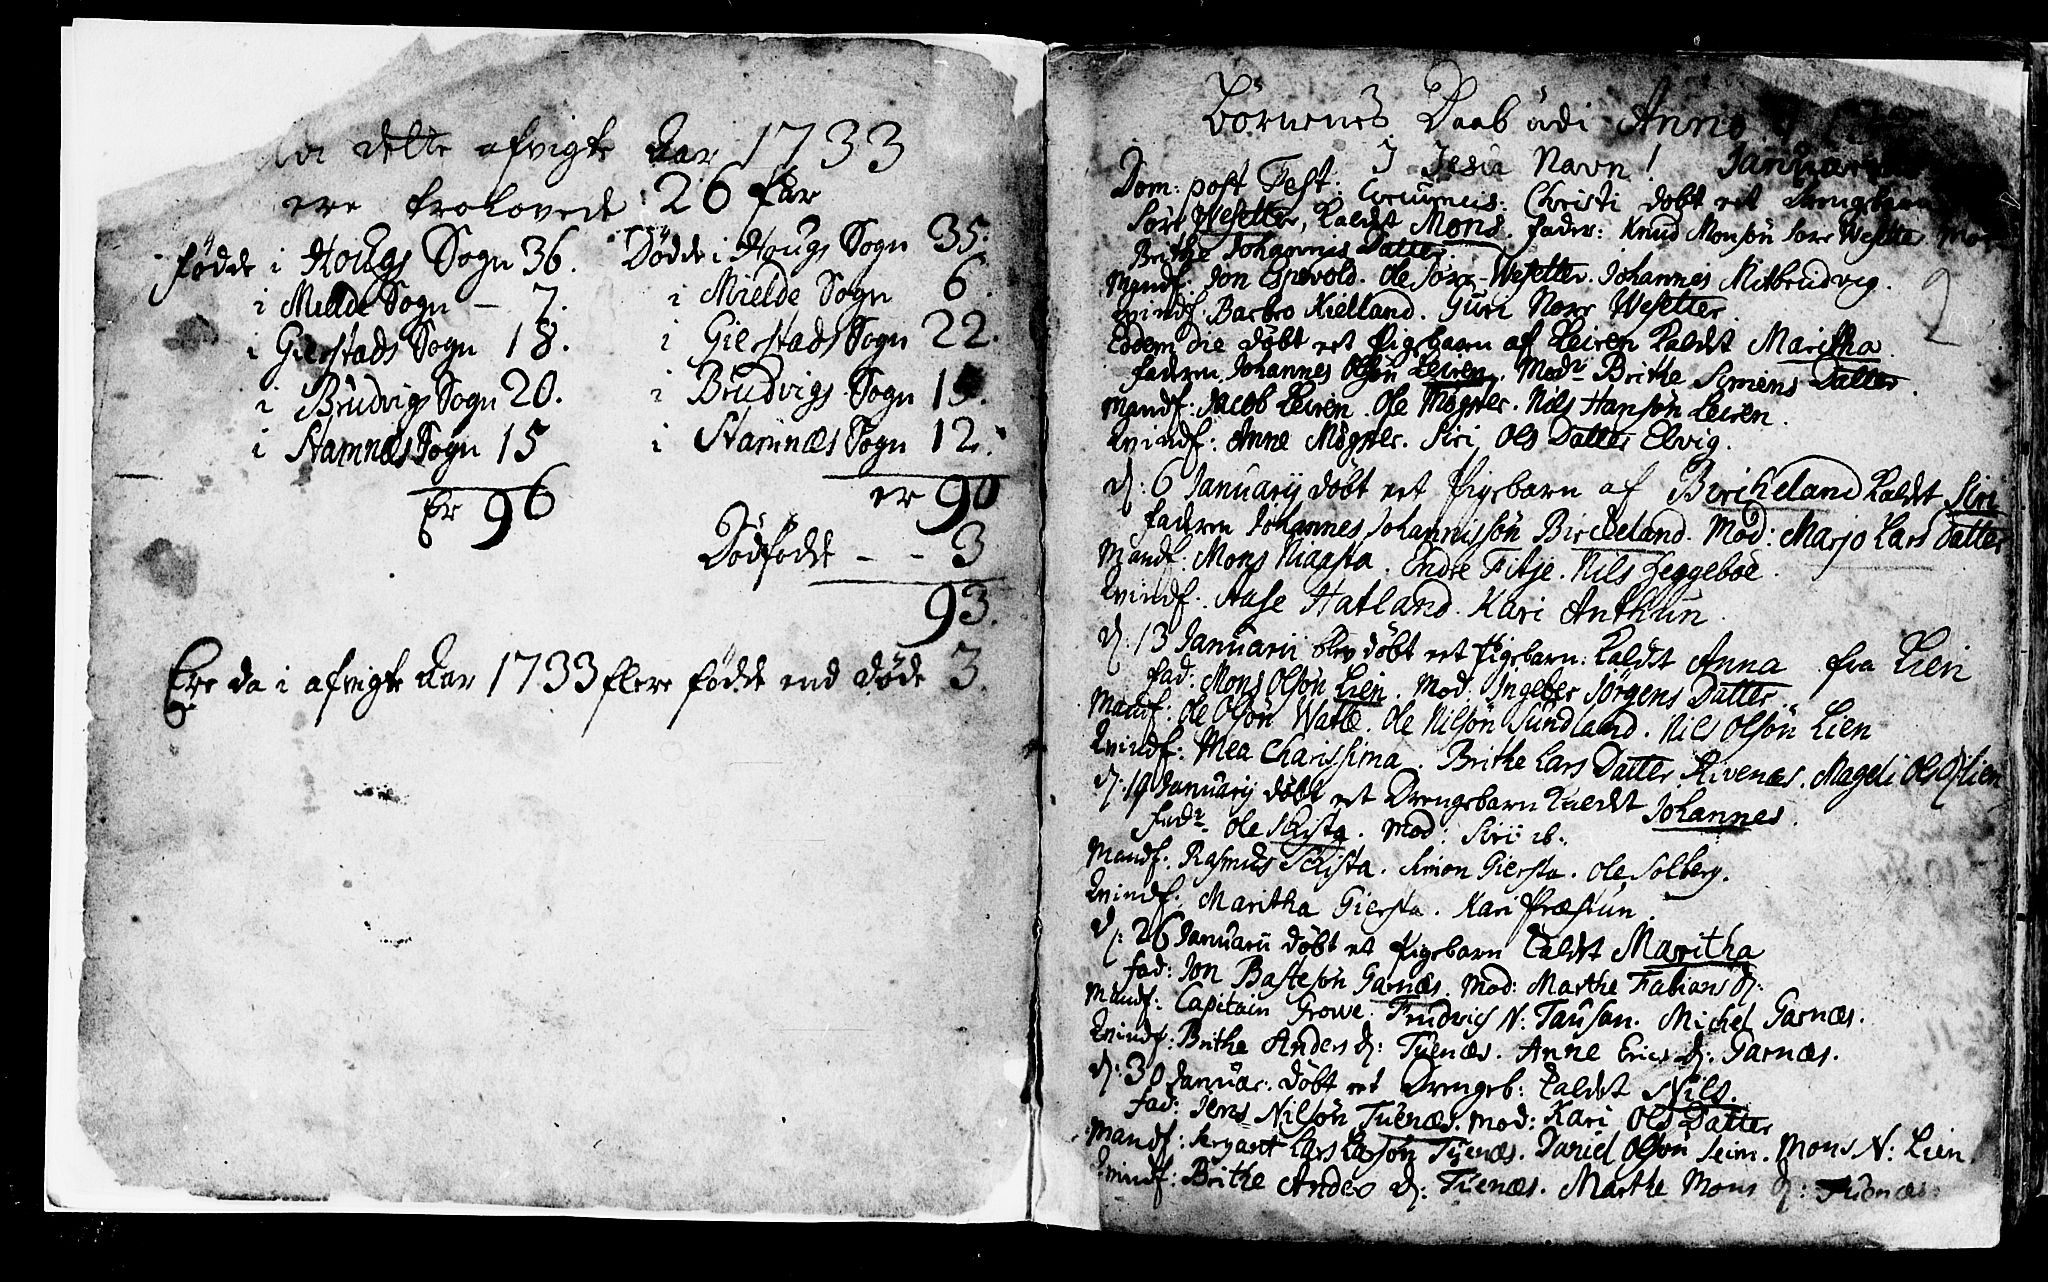 i dette afvigte Aar 1733
ere trolovede 26 Par
fødde i Hougs Sogn 36.
i Mielde Sogn – 7.
i Gierstads Sogn 18.
i Brudvigs Sogn 20.
i Stamnæs Sogn 15
Er 96
Dødde i Hougs Sogn 35.
i Mielde Sogn 6.
i Gierstads Sogn 22.
i Brudvigs Sogn 15.
i Stamnæs Sogn 12.
er 90
Dødfødde – – 3
93.
Ere da i afvigte Aar 1733 flere fødde end døde 3.
Börnenes Daab udi Anno
I Jesu Navn! Januarii
2
Dom: post Fest: Circumcis: Christi döbt et Drengebarn
Söre Wesetter, kaldt Mons. Fader: Knud Monsön Sörr Wesetter Mod
Brithe Johannis Datter.
Mandf. Jon Espevold. Ole Sörr-Wesetter. Johannes Mitbrudvig.
Qvindf. Barbro Kielland. Guri Norr Wesetter.
Eodem die döbt et Pigebarn af Leiren kaldt Maritha.
Faderen Johannes Olsön Leiren. Modr Brithe Simens Datter
Mandf: Jacob Leiren. Ole Mögster. Nils Hansön Leiren.
Qvindf: Anne Mögster. Siri Ols Datter Elvig.
d: 6 Januarij döbt et Pigebarn af Bircheland kaldt Siri
Faderen Johannes Johannissön Bircheland. Mod: Marjo Lars Datter
Mandf. Mons Niaasta. Endre Fitje. Nils Heggeböe.
Qvindf. Aase Hatland. Kari Anthun.
d: 13 Januarii blev döbt et Pigebarn: kaldt Anna fra Lien
Fad: Mons Olsön Lien. Mod. Ingeber Jörgens Datter.
Mandf: Ole Olsön Watle. Ole Nilsön Sundland. Nils Olsön Lien
Qvindf: Mea Charissima. Brithe Lars Datter Rivenæs. Mageli Ols D: Lien
d: 19 Januarij döbt et Drengebarn kaldt Johannes.
Fadr Ole Skista. Mod: Siri ib:
Mandf. Rasmus Skista. Simon Giersta. Ole Solberg.
Qvindf. Maritha Giersta. Kari Præstun.
d: 26 Januarii döbt et Pigebarn kaldt Maritha
Fad: Jon Bastesön Garnæs. Mod: Marthe Fabians D:
Mandf: Capitain Growe. Fridrich N: Tausan. Michel Garnæs.
Qvindf: Brithe Anders D: Tuenæs. Anne Erics D: Garnæs.
d: 30 Januar: döbt et Drengeb: kaldt Nils.
Fad: Jens Nilsön Tuenæs. Mod: Kari Ols Datter
Mandf: Sergant Lars Larsön Tuenæs. Daniel Olsön Seim. Mons N: Lien.
Qvindf: Brithe Anders D: Tuenæs. Marthe Mons D: Tuenæs: